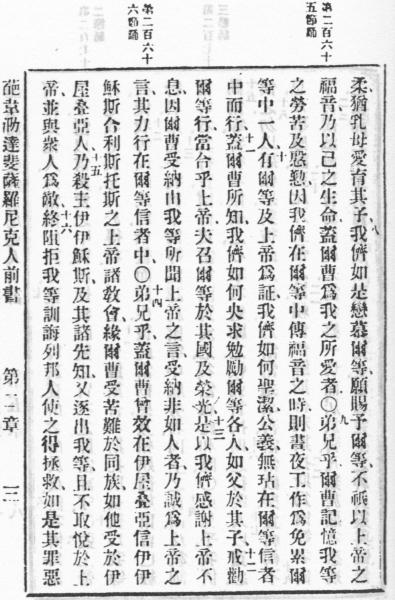 第二百六十
五節誦
第二百六十
六節誦
柔猶乳母愛育其子八我儕如是戀慕爾等願賜予爾等不祇以上帝之
福音乃以己之生命蓋爾曹爲我之所愛者〇九弟兄乎爾曹記憶我等
之勞苦及慇懃因我儕在爾等中傳福音之時則晝夜工作爲免累爾
等中一人十有爾等及上帝爲証我儕如何聖潔公義無玷在爾等信者
中而行十一蓋爾曹所知我儕如何央求勉勵爾等各人如父於其子十二戒勸
爾等行當合乎上帝夫召爾等於其國及榮光十三是以我儕感謝上帝不
息因爾曹受納由我等所聞上帝之言受納非如人者乃誠爲上帝之
言其力行在爾等信者中〇十四弟兄乎蓋爾曹曾效在伊屋叠亞信伊伊
穌斯合利斯托斯之上帝諸敎會緣爾曹受苦難於同族如他受於伊
屋叠亞人十五乃殺主伊伊穌斯及其諸先知又逐出我等且不取悅於上
帝並與衆人爲敵十六終阻拒我等訓誨列邦人使之得拯救如是其罪惡
達斐薩羅尼克人前書 第二章 三